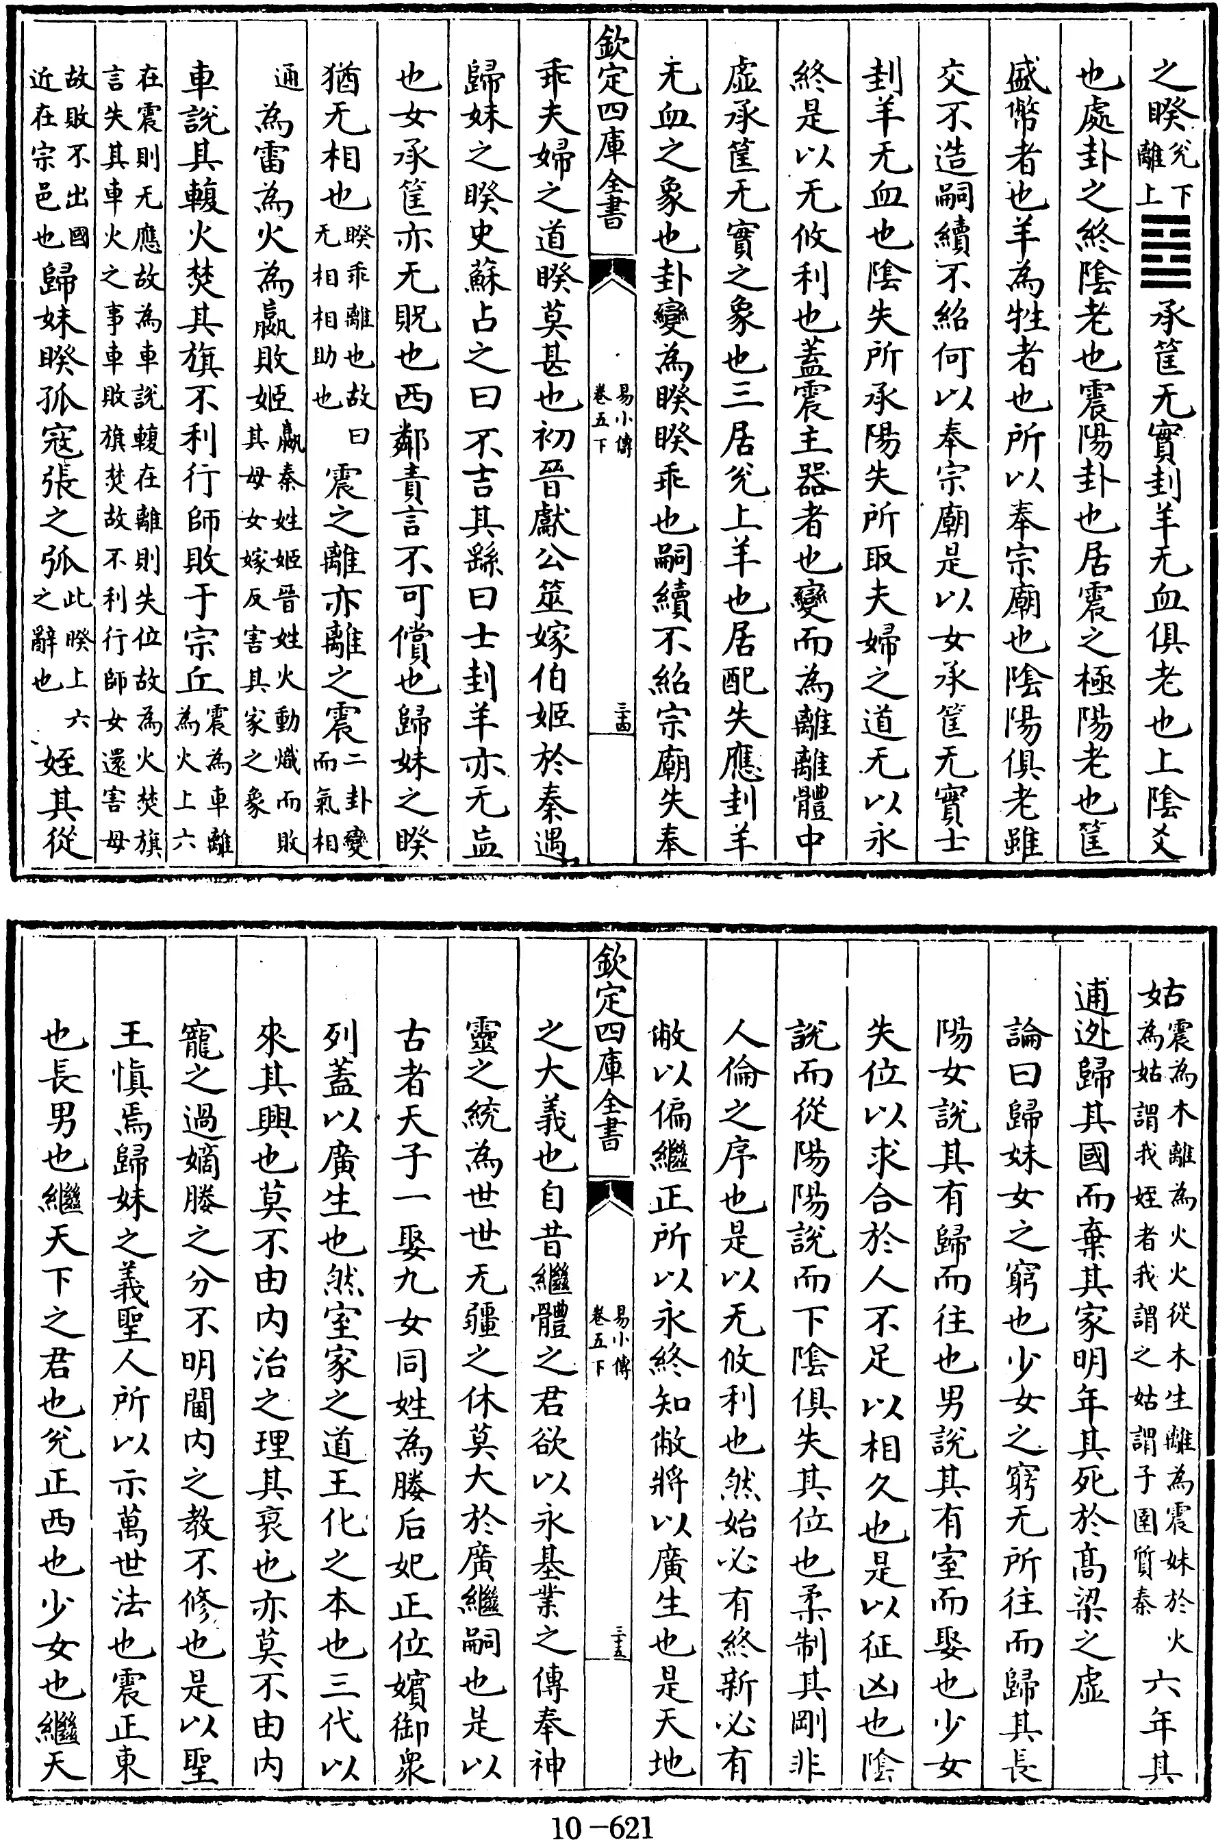 之睽兌下離上䷥承筐无實刲羊无血俱老也上陰爻
也處卦之終陰老也震陽卦也居震之極陽老也筐
盛幣者也羊為牲者也所以奉宗廟也陰陽俱老雖
交不造嗣續不紹何以奉宗廟是以女承筐无實士
刲羊无血也陰失所承陽失所取夫婦之道无以永
終是以无攸利也蓋震主器者也變而為離離體中
虛承筐无實之象也三居兌上羊也居配失應刲羊
无血之象也卦變為睽睽乖也嗣續不紹宗廟失奉
欽定四庫全書
易小傳
卷五下
三十四
乖夫婦之道睽莫甚也初晉獻公筮嫁伯姬於秦遇
歸妹之睽史蘇占之曰不吉其繇曰士刲羊亦无衁
也女承筐亦无貺也西鄰責言不可償也歸妹之睽
猶无相也睽乖離也故曰无相相助也震之離亦離之震二卦變而氣相
通為雷為火為嬴敗姬嬴秦姓姬晉姓火動熾而敗其母女嫁反害其家之象
車說其輹火焚其旗不利行師敗于宗丘震為車離為火上六
在震則无應故為車說輹在離則失位故為火焚旗言失其車火之事車敗旗焚故不利行師女還害母
故敗不出國近在宗邑也歸妹睽孤寇張之弧此睽上六之辭也姪其從
姑震為木離為火火從木生離為震妹於火為姑謂我姪者我謂之姑謂子圉質秦六年其
逋逃歸其國而棄其家明年其死於高梁之虛
論曰歸妹女之窮也少女之窮无所往而歸其長
陽女說其有歸而往也男說其有室而娶也少女
失位以求合於人不足以相久也是以征凶也陰
說而從陽陽說而下陰俱失其位也柔制其剛非
人倫之序也是以无攸利也然始必有終新必有
敝以偏繼正所以永終知敝將以廣生也是天地
欽定四庫全書
易小傳
卷五下
三十五
之大義也自昔繼體之君欲以永基業之傳奉神
靈之統為世世无疆之休莫大於廣繼嗣也是以
古者天子一娶九女同姓為媵后妃正位嬪御衆
列蓋以廣生也然室家之道王化之本也三代以
來其興也莫不由内治之理其衰也亦莫不由内
寵之過嫡媵之分不明閫内之教不修也是以聖
王慎焉歸妹之義聖人所以示萬世法也震正東
也長男也繼天下之君也兌正西也少女也繼天
10-621